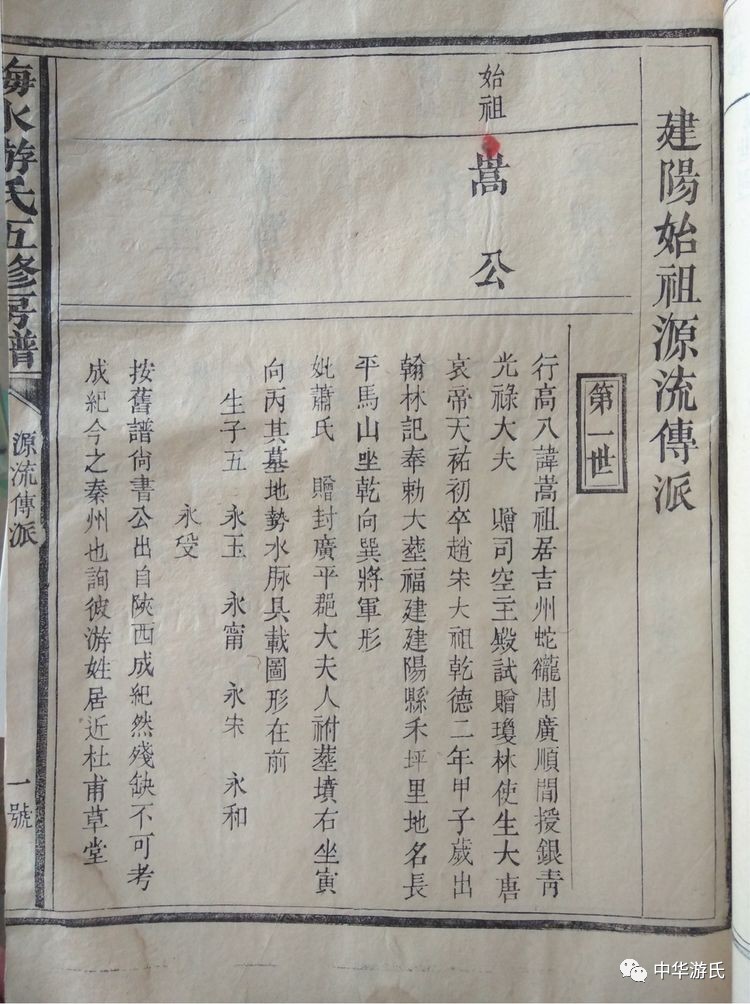 建陽始祖源流傳派
始祖
嵩公
第一世
行高八諱嵩祖居吉州蛇巃周廣順間授銀青
光祿大夫 贈司空主殿試贈瓊林使生大唐
哀帝天祐初卒趙宋大祖乾德二年甲子歲出
翰林記奉勅大塟福建建陽縣禾坪里地名長
平馬山坐乾向巽將軍形
妣蕭氏 贈封廣平郡大夫人祔塟墳右坐寅
向丙其墓地勢水脉具載圖形在前
生子五 永玉 永甯 永宋 永和
永
按舊譜尙書公出自陝西成紀然殘缺不可考
成紀今之秦州也詢彼游姓居近杜甫草堂
海水游氏五修房譜
源流傳派
一號
中华游氏